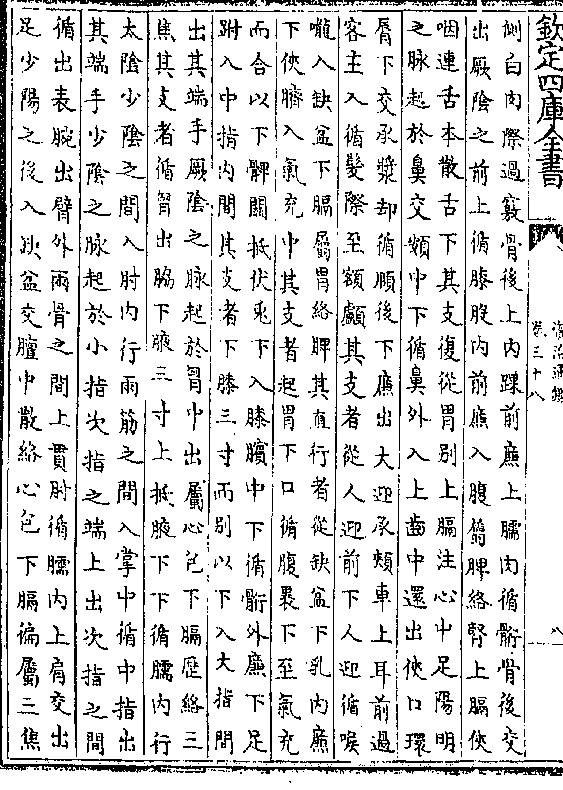 欽定四庫全書
卷三十八
八
側白肉際過竅骨後上內踝前廉上臑內循骭骨後交
出厥陰之前上循膝股內前廉入腹屬脾絡腎上膈俠
咽連舌本散舌下其支復從胃別上膈注心中足陽明
之脉起於鼻交頞中下循鼻外入上齒中還出俠口環
脣下交承漿却循頤後下廉出大迎承頰車上耳前過
客主入循髮際至額顱其支者從人迎前下人迎循喉
嚨入缺盆下膈屬胃絡脾其直行者從缺盆下乳內廉
下俠臍入氣充中其支者起胃下口循腹裏下至氣充
而合以下髀關抵伏兎下入膝臏中下循骭外廉下足
跗入中指內間其支者下膝三寸而別以下入大指間
出其端手厥陰之脉起於胷中出屬心包下膈歷絡三
焦其支者循胷出脇下腋三寸上抵腋下下循臑內行
太陰少陰之間入肘內行兩筋之間入掌中循中指出
其端手少陰之脉起於小指次指之端上出次指之間
循出表腕出臂外兩骨之間上貫肘循臑內上肩交出
足少陽之後入缺盆交膻中散絡心包下膈徧屬三焦